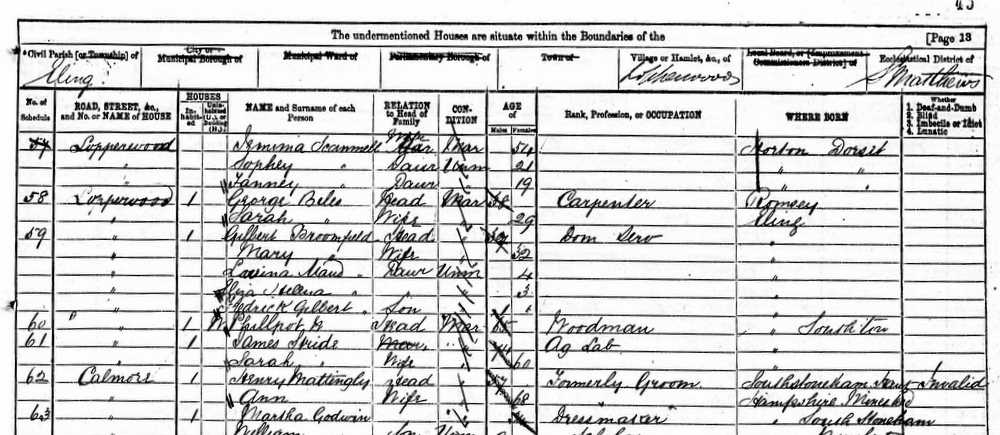 43
The undermentioned Houses are situate within the Boundaries of the [Page 13
Civil Parish [or Township] of City or Municipal Borough of Municipal Ward of Parliamentary Borough of Town of Village or Hamlet, &c., of Local Board, or [Improvement Commissioners District] of Ecclesiastical District of
Eling St Matthews
No. of Schedule ROAD, STREET, &c., and No. or NAME of HOUSE HOUSES Inhabited Uninhabited (U.), or Building (B.) NAME and Surname of each Person RELATION to Head of Family CONDITION AGE of Males Females Rank, Profession, or OCCUPATION WHERE BORN Whether 1. Deaf-and-Dumb 2. Blind 3. Imbecile or Idiot 4. Lunatic
Lopperwood Jemima Scammell Mar 54 Horton Dorset
" Sophey " Daur Unm 21 " "
Fanney " Daur 19 " "
58 Lopperwood 1 George Biles Head Mar 38 Carpenter Romsey
" Sarah " Wife 29 Eling
59 " 1 Gilbert Broomfield Head 32 Dom Serv "
" Mary " Wife 32 "
" Lavina Maud " Daur Unm 4 "
" Eliza Helena " " 3 "
" Fedrick Gilbert " Son 1 "
60 " 1 Phillpot Head Mar 65 Woodman " Southton
61 " 1 James Stride Mar " Ag Lab "
" Sarah " Wife 60 "
62 Calmore 1 Henry Mattingly Head 57 Formerly Groom Southstoneham Hant Invalid
" Ann " Wife 68 Hampshire
63 " 1 Martha Godwin Dressmaker " South Stoneham
William Son Unm